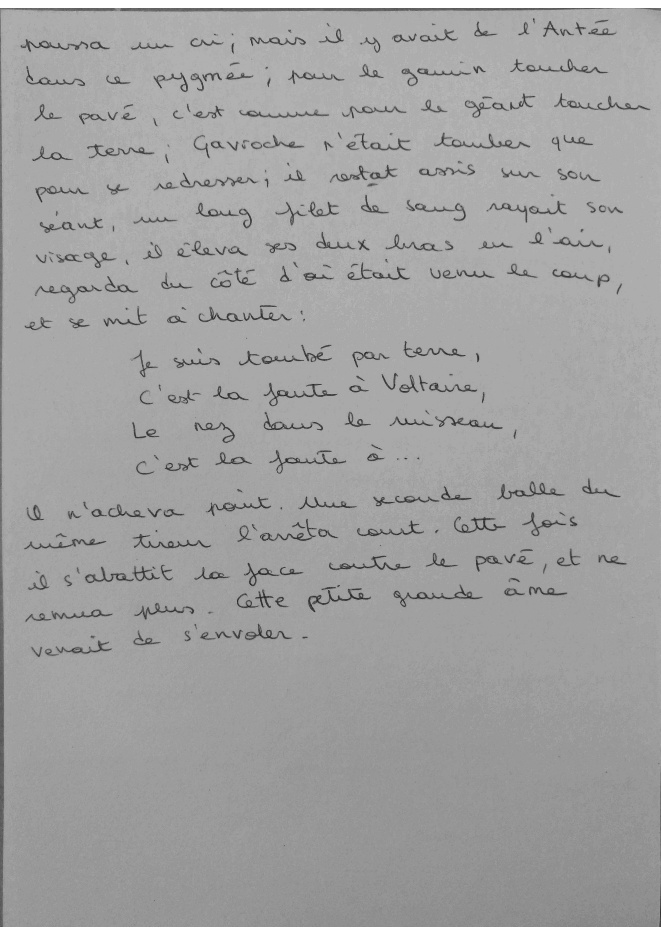 poussa un cri; mais il y avait de l'Antée
dans ce pygmée; pour le gamin toucher
le pavé, c'est comme pour le géant toucher
la terre; Gavroche n'était tomber que
pour se redresser; il restat assis sur son
séant, un long filet de sang rayait son
visage, il éleva ses deux bras en l'air,
regarda du côté d'où était venu le coup,
et se mit à chanter:
Je suis tombé par terre,
C'est la faute à Voltaire,
Le nez dans le ruisseau,
C'est la faute à ...
Il n'acheva point. Une seconde balle du
même tireur l'arrêta court. Cette fois
il s'abattit la face contre le pavé, et ne
remua plus. Cette petite grande âme
venait de s'envoler.